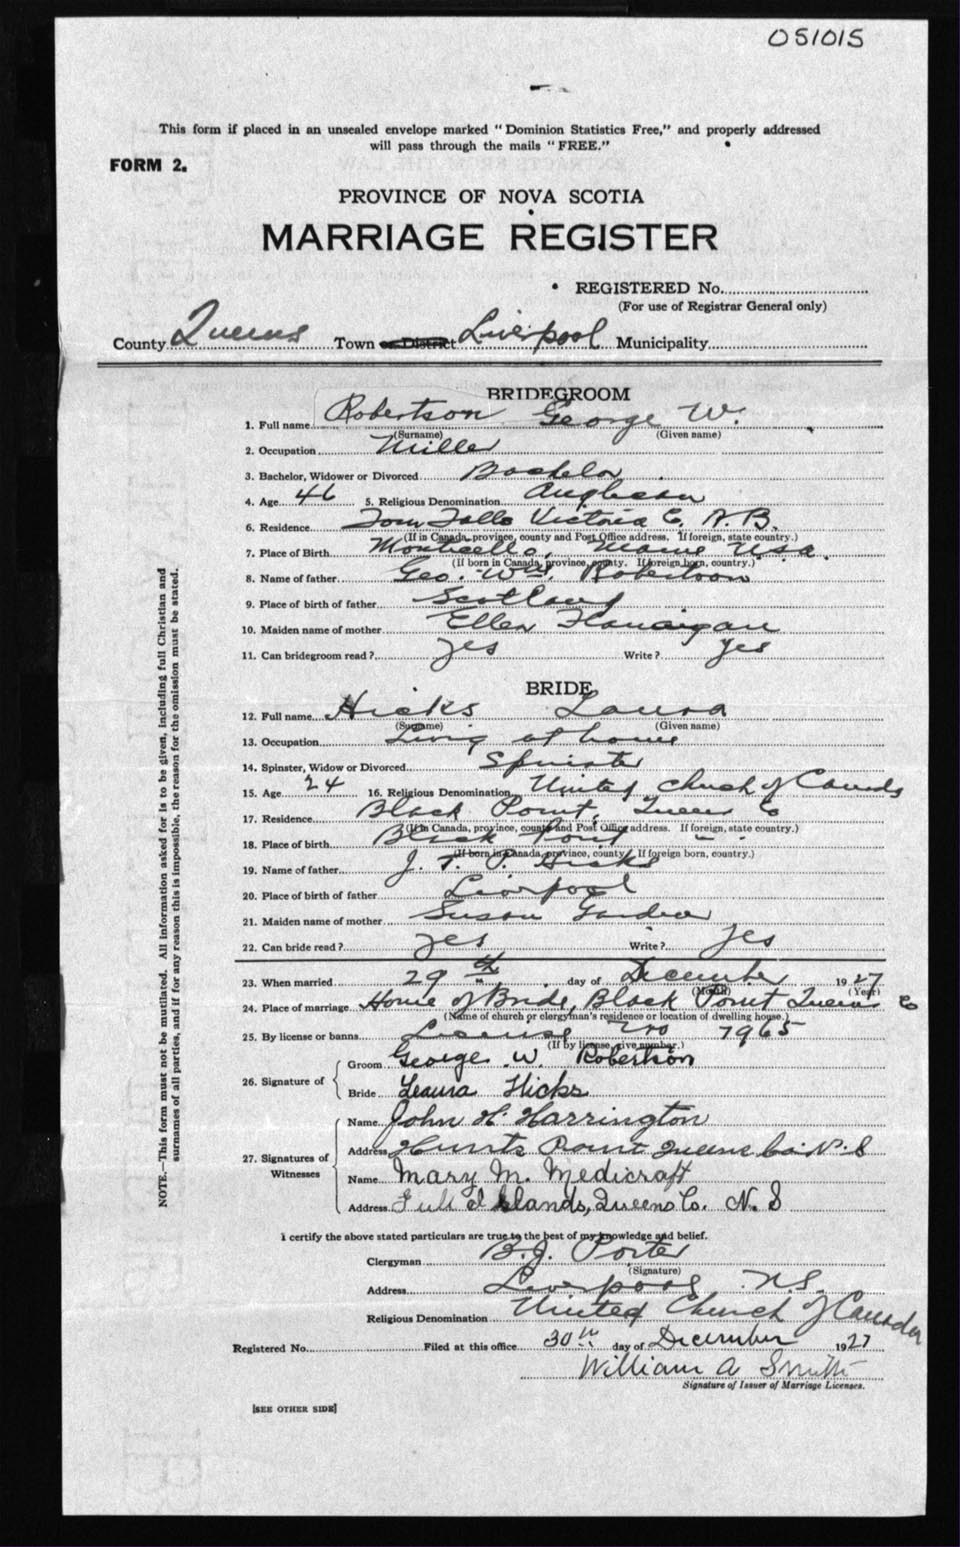 051015
This form if placed in an unsealed envelope marked "Dominion Statistics Free," and properly addressed
will pass through the mails "FREE."
FORM 2.
PROVINCE OF NOVA SCOTIA
MARRIAGE REGISTER
REGISTERED No.
(For use of Registrar General only)
County Queens Town or District Liverpool Municipality
BRIDEGROOM
1. Full name Robertson George W.
(Surname) (Given name)
2. Occupation Miller
3. Bachelor, Widower or Divorced Bachelor
4. Age 46 5. Religious Denomination Anglican
6. Residence Victoria Co.
(If in Canada, province, county and Post Office address. If foreign, state country.)
7. Place of Birth Monticello, Maine U.S.A.
(If born in Canada, province, county. If foreign born, country.)
8. Name of father Geo. Wm. Robertson
9. Place of birth of father Scotland
10. Maiden name of mother Ellen Flanaigan
11. Can bridegroom read? yes Write? yes
BRIDE
12. Full name Hicks Laura
(Surname) (Given name)
13. Occupation Living at home
14. Spinster, Widow or Divorced Spinster
15. Age 24 16. Religious Denomination United Church of Canada
17. Residence Black Point, Queens Co
(If in Canada, province, county and Post Office address. If foreign, state country.)
18. Place of birth Black Point " "
(If born in Canada, province, county. If foreign born, country.)
19. Name of father J. T. P. Hicks
20. Place of birth of father Liverpool
21. Maiden name of mother Susan
22. Can bride read? yes Write? yes
23. When married 29th day of December 1927
(Month) (Year)
24. Place of marriage Home of Bride, Black Point Queens Co
(Name of church or clergyman's residence or location of dwelling house.)
25. By license or banns License No 7965
(If by license, give number.)
26. Signature of Groom George W. Robertson
Bride Leaura Hicks
27. Signatures of Witnesses Name John H. Harrington
Address Hunts Point Queens Co. N. S
Name Mary M. Medicraft
Address Islands, Queens Co. N. S
I certify the above stated particulars are true to the best of my knowledge and belief.
Clergyman B. J. Porter
(Signature)
Address Liverpool N.S.
Religious Denomination United Church of Canada
Registered No. Filed at this office 30th day of December 1927
William A Smith
Signature of Issuer of Marriage Licenses.
[SEE OTHER SIDE]
NOTE.—This form must not be mutilated. All information asked for is to be given, including full Christian and
surnames of all parties, and if for any reason this is impossible, the reason for the omission must be stated.